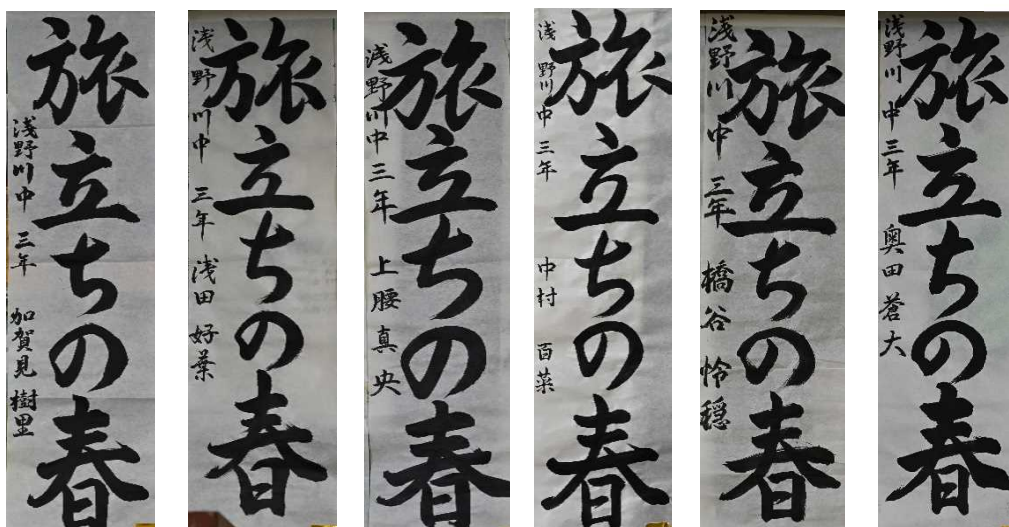 旅立ちの春
浅野川中 三年 加賀見 樹里
旅立ちの春
浅野川中 三年 浅田 好葉
旅立ちの春
浅野川中 三年 上腰 真央
旅立ちの春
浅野川中 三年 中村 百菜
旅立ちの春
浅野川中 三年 橋谷 怜穏
旅立ちの春
浅野川中 三年 奥田 蒼大